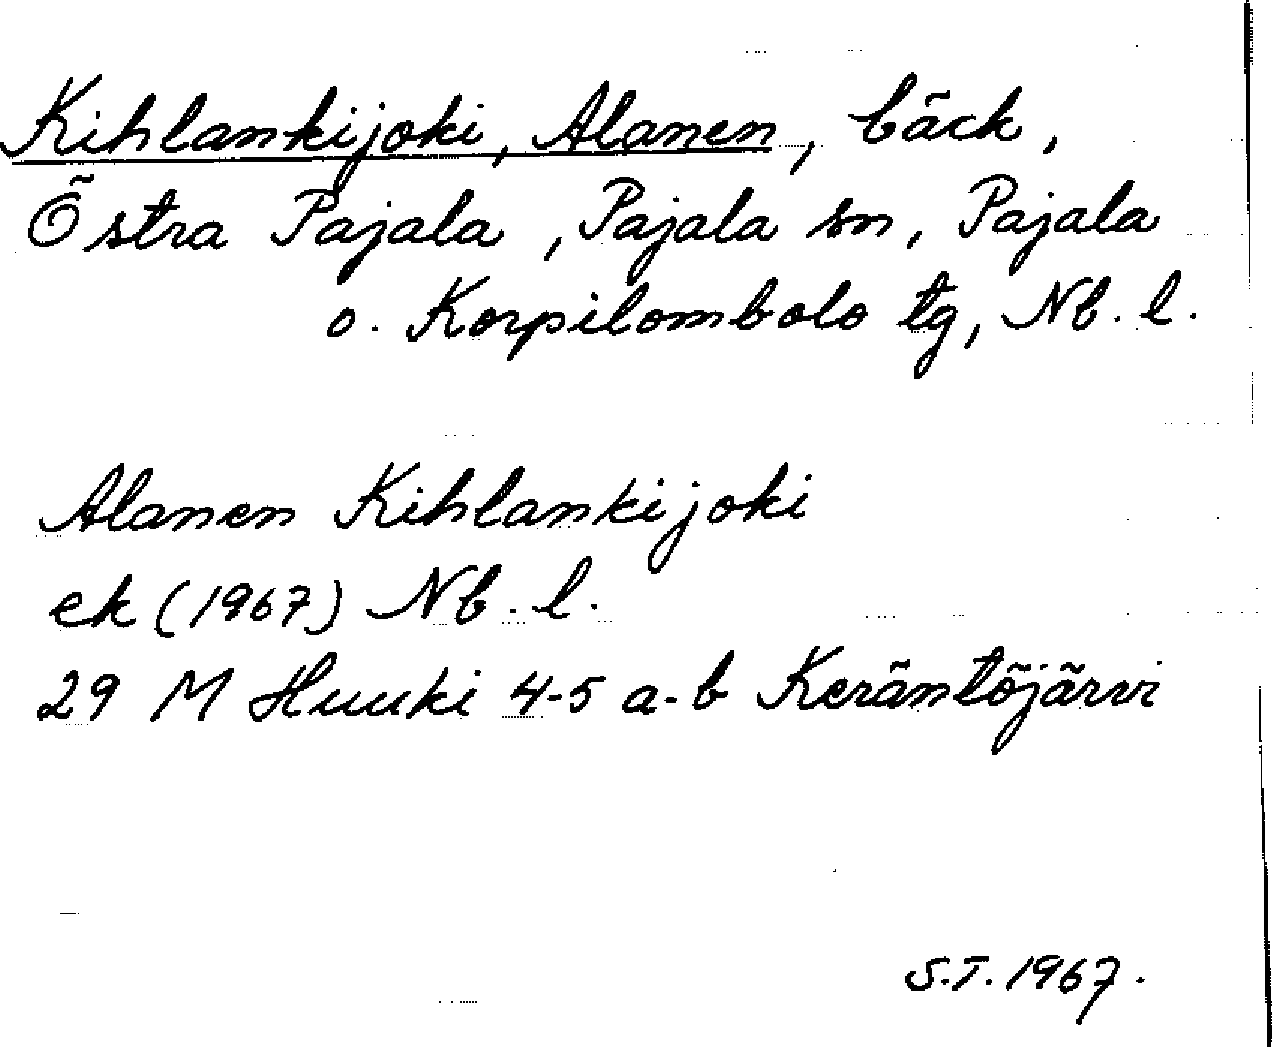 Kihlankijoki, Alanen, bäck,
Östra Pajala, Pajala sn, Pajala
o. Korpilombolo tg, Nb. l.
Alanen Kihlankijoki
ek (1967) Nb. l.
29 M Huuki 4-5 a-b Keräntöjärvi
S.T. 1967.